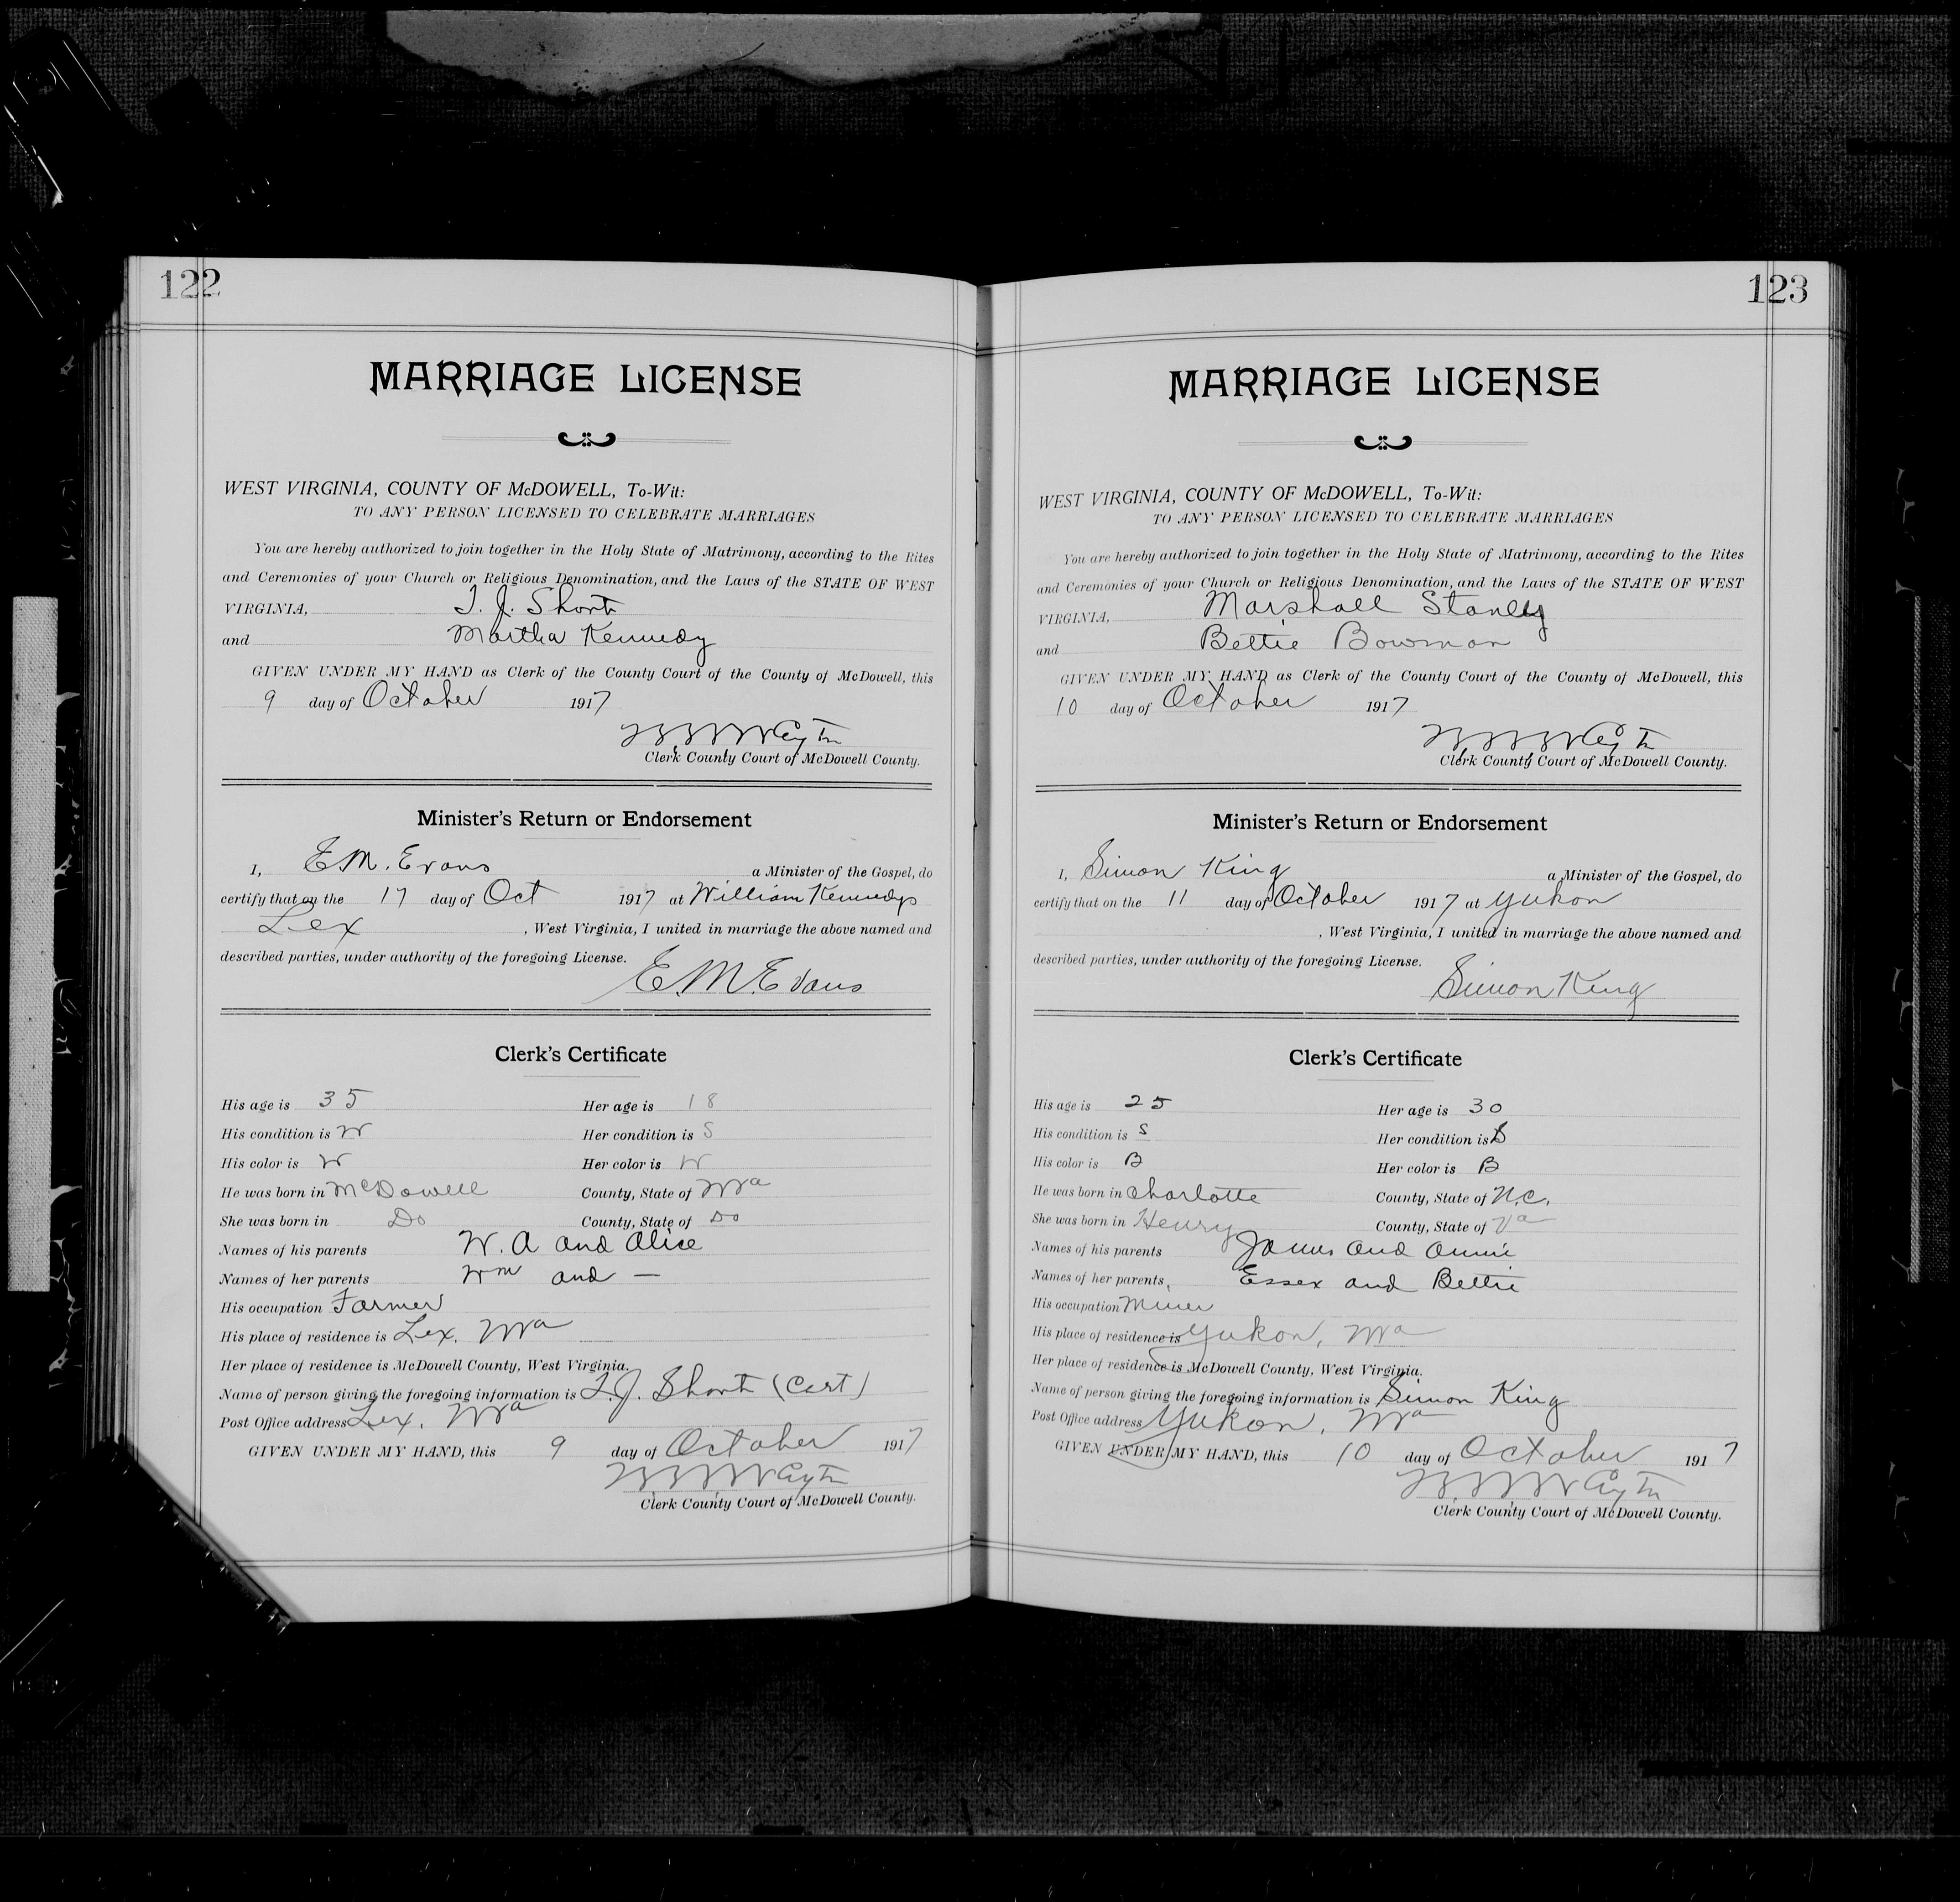 122
MARRIAGE LICENSE
WEST VIRGINIA, COUNTY OF McDOWELL, To-Wit:
TO ANY PERSON LICENSED TO CELEBRATE MARRIAGES
You are hereby authorized to join together in the Holy State of Matrimony, according to the Rites
and Ceremonies of your Church or Religious Denomination, and the Laws of the STATE OF WEST
VIRGINIA, T. J. Short
and Martha Kennedy
GIVEN UNDER MY HAND as Clerk of the County Court of the County of McDowell, this
9 day of October 1917
Clerk County Court of McDowell County.
Minister's Return or Endorsement
I, E.M. Evans a Minister of the Gospel, do
certify that on the 17 day of Oct 1917 at William Kennedys
Lex , West Virginia, I united in marriage the above named and
described parties, under authority of the foregoing License.
E.M. Evans
Clerk's Certificate
His age is 35 Her age is 18
His condition is W Her condition is S
His color is W Her color is W
He was born in McDowell County, State of WVa
She was born in Do County, State of Do
Names of his parents W. A and Alice
Names of her parents Wm and —
His occupation Farmer
His place of residence is Lex. WVa
Her place of residence is McDowell County, West Virginia.
Name of person giving the foregoing information is T.J. Short (Cert)
Post Office address Lex, WVa
GIVEN UNDER MY HAND, this 9 day of October 1917
Clerk County Court of McDowell County.
123
MARRIAGE LICENSE
WEST VIRGINIA, COUNTY OF McDOWELL, To-Wit:
TO ANY PERSON LICENSED TO CELEBRATE MARRIAGES
You are hereby authorized to join together in the Holy State of Matrimony, according to the Rites
and Ceremonies of your Church or Religious Denomination, and the Laws of the STATE OF WEST
VIRGINIA, Marshall Stanley
and Bettie Bowman
GIVEN UNDER MY HAND as Clerk of the County Court of the County of McDowell, this
10 day of October 1917
Clerk County Court of McDowell County.
Minister's Return or Endorsement
I, Simon King a Minister of the Gospel, do
certify that on the 11 day of October 1917 at Yukon
, West Virginia, I united in marriage the above named and
described parties, under authority of the foregoing License.
Simon King
Clerk's Certificate
His age is 25 Her age is 30
His condition is S Her condition is S
His color is B Her color is B
He was born in Charlotte County, State of N.C.
She was born in Henry County, State of Va
Names of his parents James and Annie
Names of her parents, Essex and Bettie
His occupation Miner
His place of residence is Yukon, WVa
Her place of residence is McDowell County, West Virginia.
Name of person giving the foregoing information is Simon King
Post Office address Yukon, WVa
GIVEN UNDER MY HAND, this 10 day of October 1917
Clerk County Court of McDowell County.